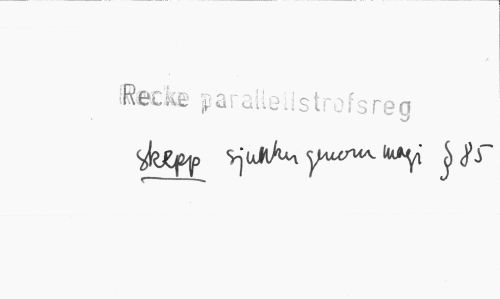 Recke parallellstrofsreg
skepp sjunker genom magi § 85